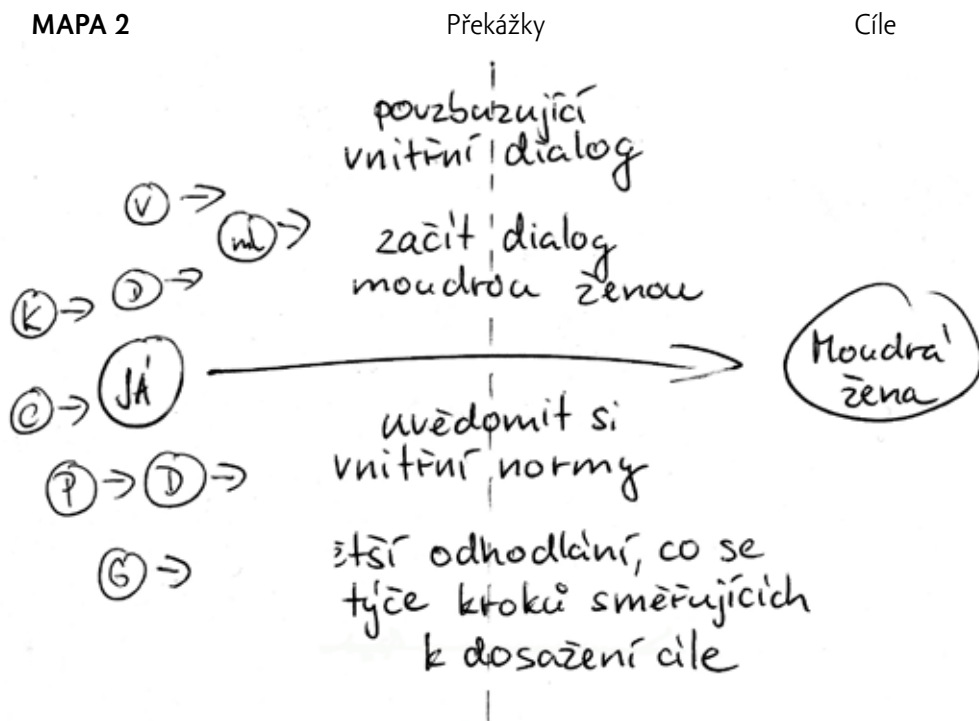 MAPA 2 Překážky Cíle
povzbuzující
vnitřní dialog
V
ml
začít dialog
moudrou ženou
K
D
JÁ
Moudrá
žena
C
uvědomit si
vnitřní normy
P
D
G
ětší odhodlání, co se
týče kroků směřujících
k dosažení cíle